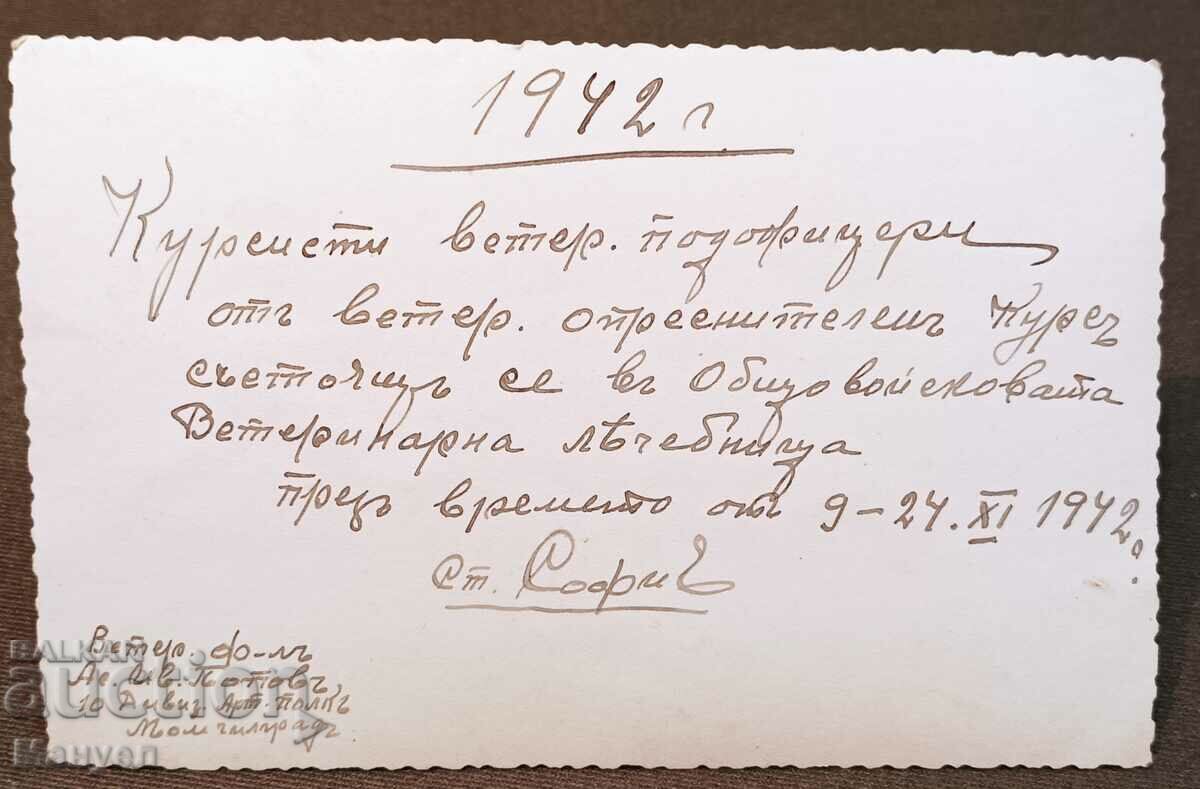 1942 г
Курсисти ветер. подофицери
отъ ветер. опреснителенъ Курсъ
състоящъ се въ Общовойсковата
Ветеринарна лѣчебница
презъ времето от 9-24. XI 1942.
Ст. София
Ветер. ф-лъ
Ас. Ив. Поповъ
10 Дивиз. Арт. полкъ
Момчилградъ
BALKAN
auction
Мануел